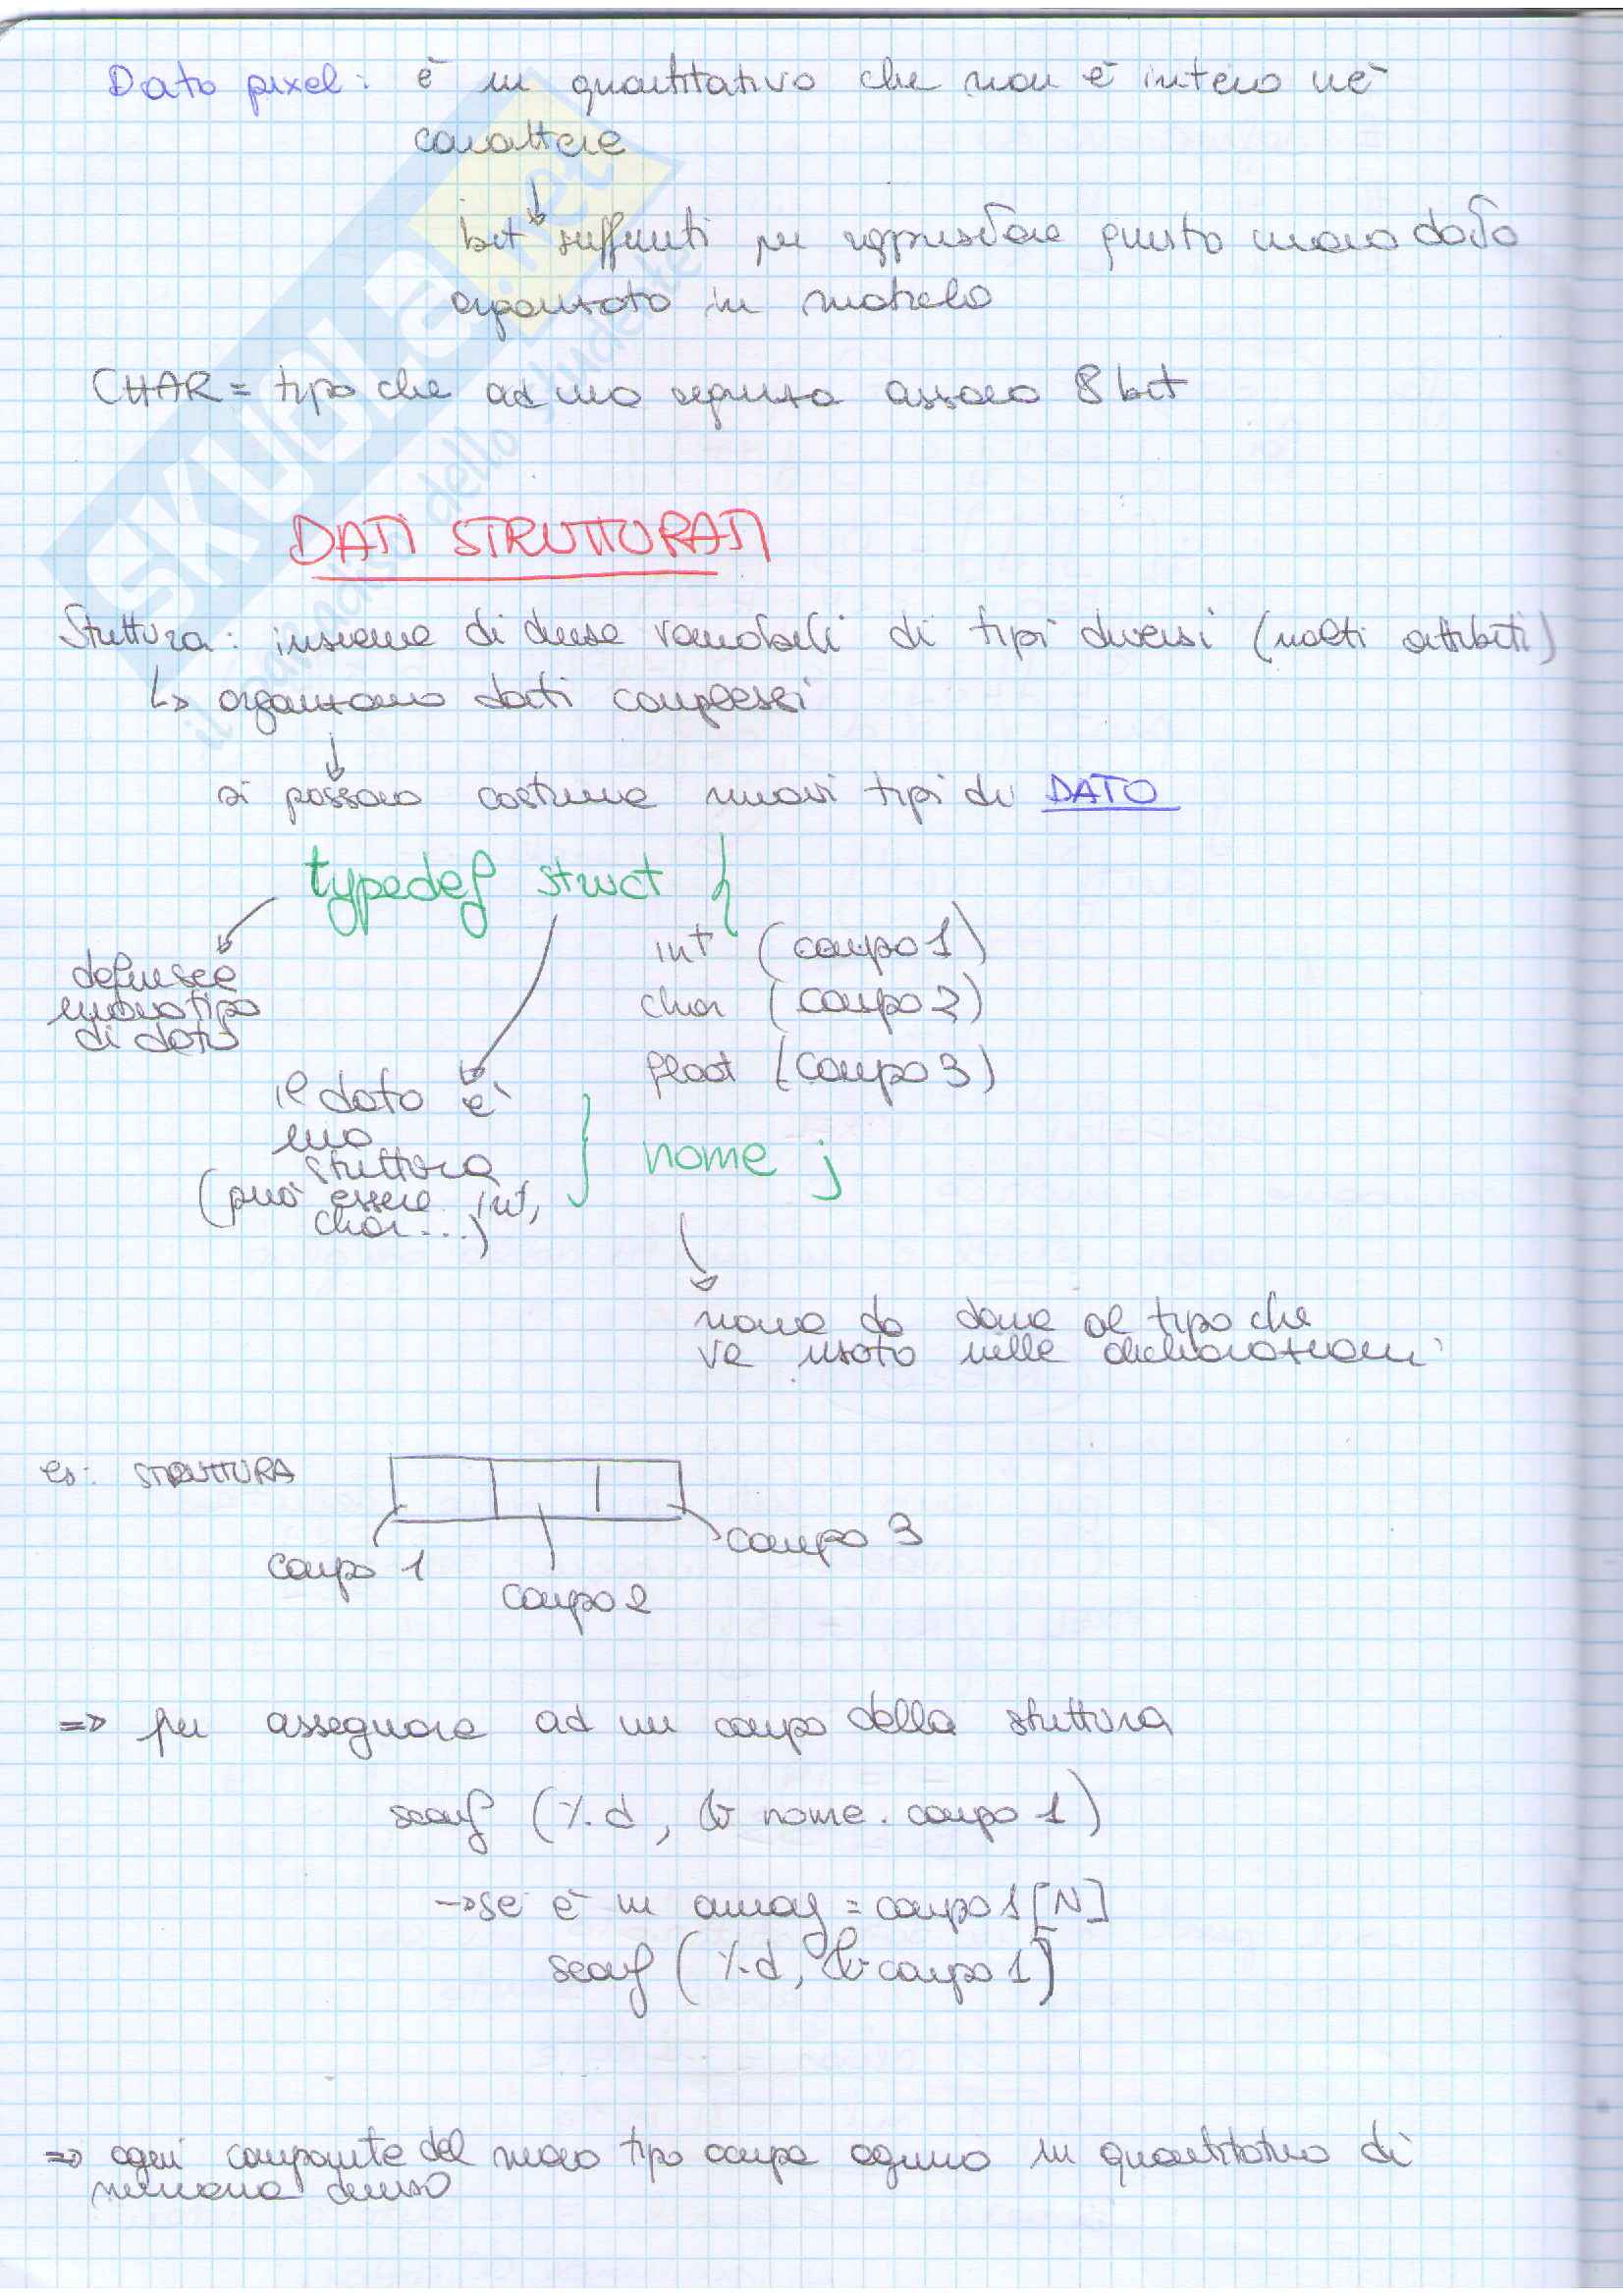 Dato pixel: è un quantitativo che non è intero nè
carattere
↓
bit sufficienti per rappresentare questo nuovo dato
organizzato in modello
CHAR = tipo che ad una sequenza associo 8 bit
DATI STRUTTURATI
Struttura: insieme di diverse variabili di tipi diversi (molti attributi)
↳ organizzano dati complessi
↓
si possono costruire nuovi tipi di DATO
typedef struct {
int (campo 1)
definisce
nuovo tipo
di dato
char (campo 2)
float (campo 3)
il dato è
una
struttura
(può essere int,
char...)
} nome ;
nome da dare al tipo che
va usato nelle dichiarazioni
es: STRUTTURA
campo 1
campo 2
campo 3
=> per assegnare ad un campo della struttura
scanf (%d, & nome. campo 1)
→ se è un array = campo 1[N]
scanf (%d, & campo 1)
=> ogni componente del nuovo tipo occupa ognuno un quantitativo di
memoria diverso
SKUOLA.net
il paradiso dello studente